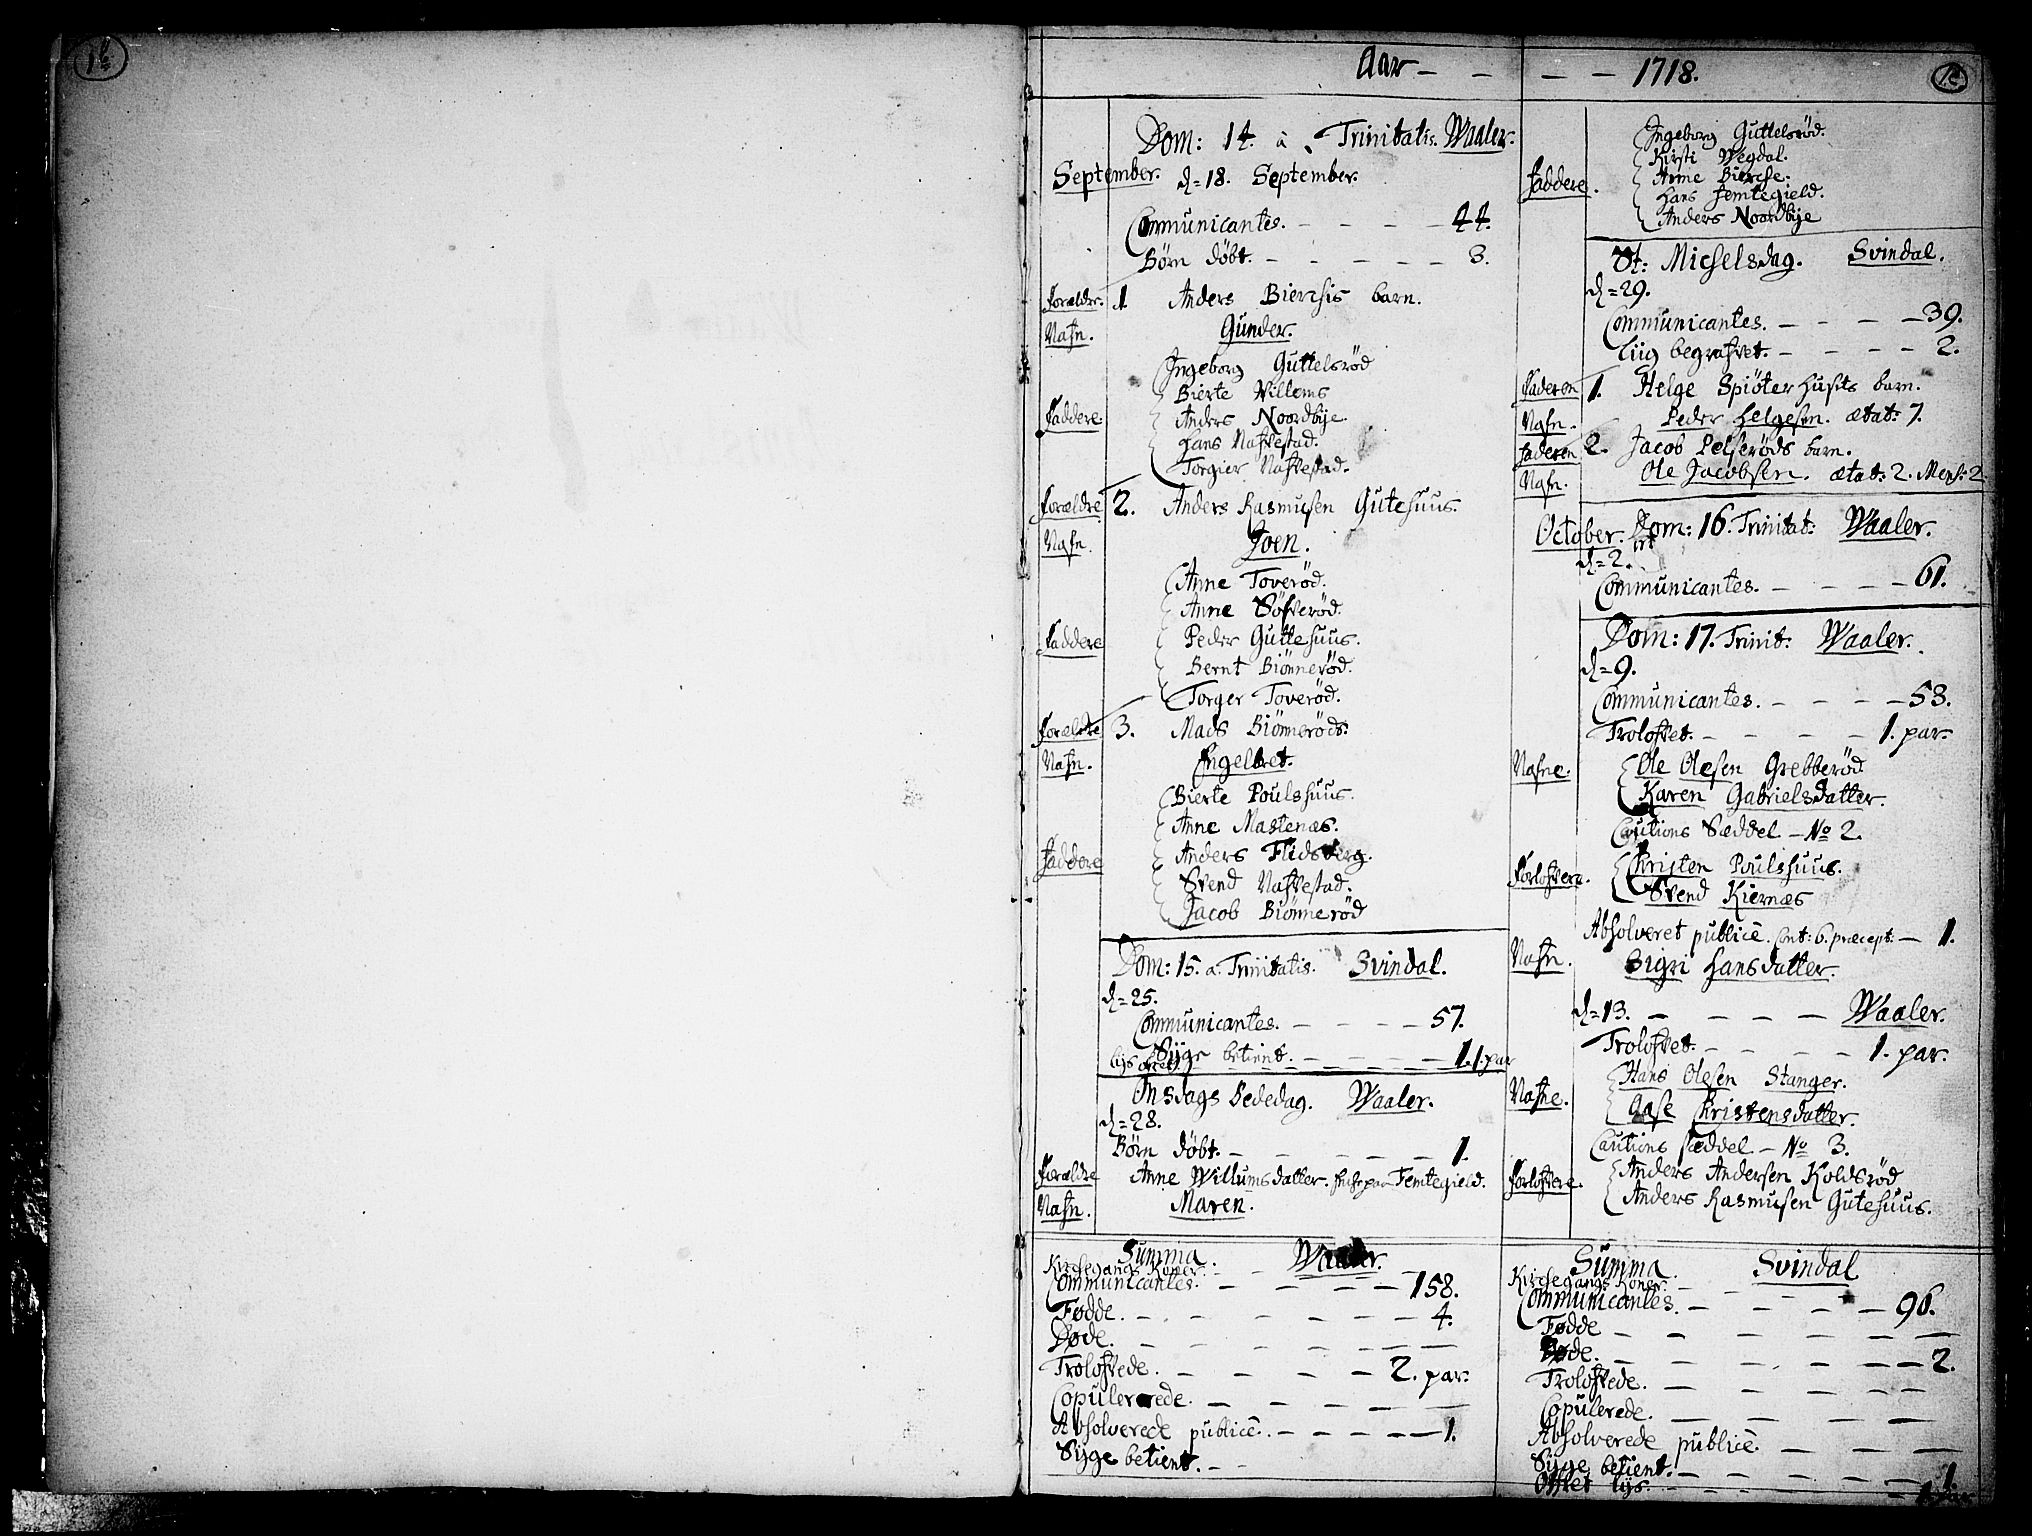 Aar - - - - 1718.
Dom: 14. à Trinitatis. Waaler.
September. d=18. September.
Communicantes. - - - - 44.
Børn døbt. - - - - - 3.
Forældre. 1. Anders Bierchis barn.
Nafn. Gunder.
Ingeborg Guttelsrød
Bierte Willems
Faddere Anders Noordbye
Hans Nafvestad.
Torgier Nafvestad.
Forældre 2. Anders Rasmusen Gutehuus.
Nafn. Joen.
Anne Toverød.
Anne Søfverød.
Faddere Peder Guttehuus.
Bernt Biønnerød.
Torger Toverød.
Forældre 3. Mads Biønnerøds.
Nafn. Engelbret.
Bierte Poulshuus.
Anne Mastenæs.
Faddere Anders Flidsberg.
Svend Nafvestad.
Jacob Biønnerød
Dom: 15. a. Trinitatis. Svindal.
d=25.
Communicantes. - - - - 57.
Syge betient. - - - - - 1. 1. par
Onsdags Bededag. Waaler.
d=28.
Børn døbt. - - - - - - 1.
Forældre Anne Willumsdatter. Femtegield.
Nafn. Maren.
Summa Waaler.
Kirchegangs Koner. - -
Communicantes. - - - - 158.
Fødde. - - - - - - 4.
Døde. - - - - - -
Trolofvede. - - - - 2. par.
Copulerede. - - - - - -
Absolverede publicè. - - - - - 1.
Syge betient. - -
Ingeborg Guttelsrød.
Kirsti Wegdal.
Faddere. Anne Bierche.
Hans Femtegield.
Anders Noordbye
St: Michelsdag. Svindal.
d=29.
Communicantes. - - - - 39.
Liig begrafvet. - - - - 2.
Faderen 1. Helge Spiøterhusits barn.
Nafn. Peder Helgesen. ætat: 7.
Faderen 2. Jacob Pelserøds barn.
Nafn. Ole Jacobsen. ætat: 2. Mens: 2
October. Dom: 16. Trinitat: Waaler.
d=2.
Communicantes. - - - - 61.
Dom: 17. Trinit: Waaler.
d=9.
Communicantes. - - - - 53.
Trolofvet. - - - - 1. par.
Nafne. Ole Olesen Grebberød
Karen Gabrielsdatter.
Cautions Sæddel - No 2.
Forlofvere. Christen Poulshuus.
Svend Kiernæs
Absolveret publicè. Cont: 6. præcept. - 1.
Nafn. Sigri Hansdatter.
d=13. - - - - - Waaler.
Trolofvet. - - - - 1. par.
Nafne. Hans Olesen Stanger.
Aase Christensdatter.
Cautions sæddel - No 3.
Forlofvere. Anders Andersen Koldsrød
Anders Rasmusen Gutehuus.
Summa Svindal
Kirchegangs Koner. - -
Communicantes. - - - - 96.
Fødde - - - - - -
Døde. - - - - - - 2.
Trolofvede. - - - - -
Copulerede. - - - -
Absolverede publicè. - - - -
Syge betient. - - - - - 1.
Offret lys. - - - - -